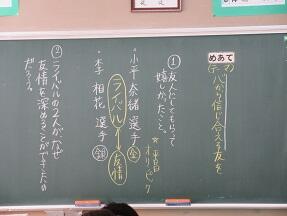 めあて
(テーマ) 心から信じ合える友を
① 友人にしてもらって
嬉しかったこと。
☆平昌オリンピック
・小平奈緒選手 金
ライバル
友情
・李 相花 選手 銀
② ライバルの2人がなぜ
友情を深めることができたの
だろう。